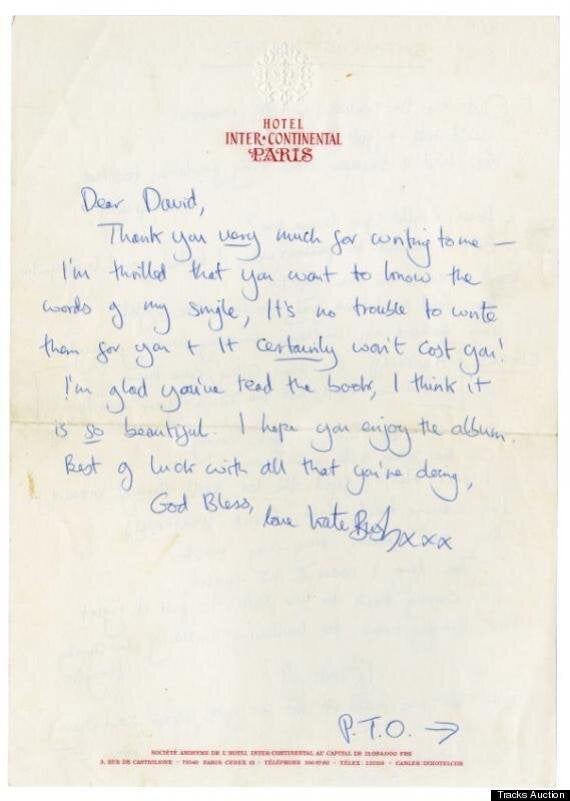 HOTEL
INTER•CONTINENTAL
PARIS
Dear David,
Thank you very much for writing to me —
I'm thrilled that you want to know the
words of my single, It's no trouble to write
them for you + It certainly won't cost you!
I'm glad you've read the book, I think it
is so beautiful. I hope you enjoy the album.
Best of luck with all that you're doing,
God Bless,
love Kate Bush xxxx
P.T.O. →
SOCIÉTÉ ANONYME DE L'HOTEL INTER-CONTINENTAL AU CAPITAL DE FRS
3, RUE DE CASTIGLIONE - 75040 PARIS CEDEX - TÉLÉPHONE - TÉLEX - CABLES: INHOTELCOR
Tracks Auction